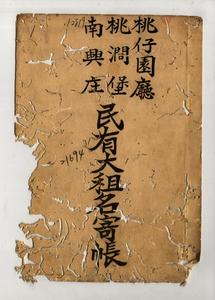 桃仔園廳
桃澗堡
南興庄
民有大租名寄帳
21694